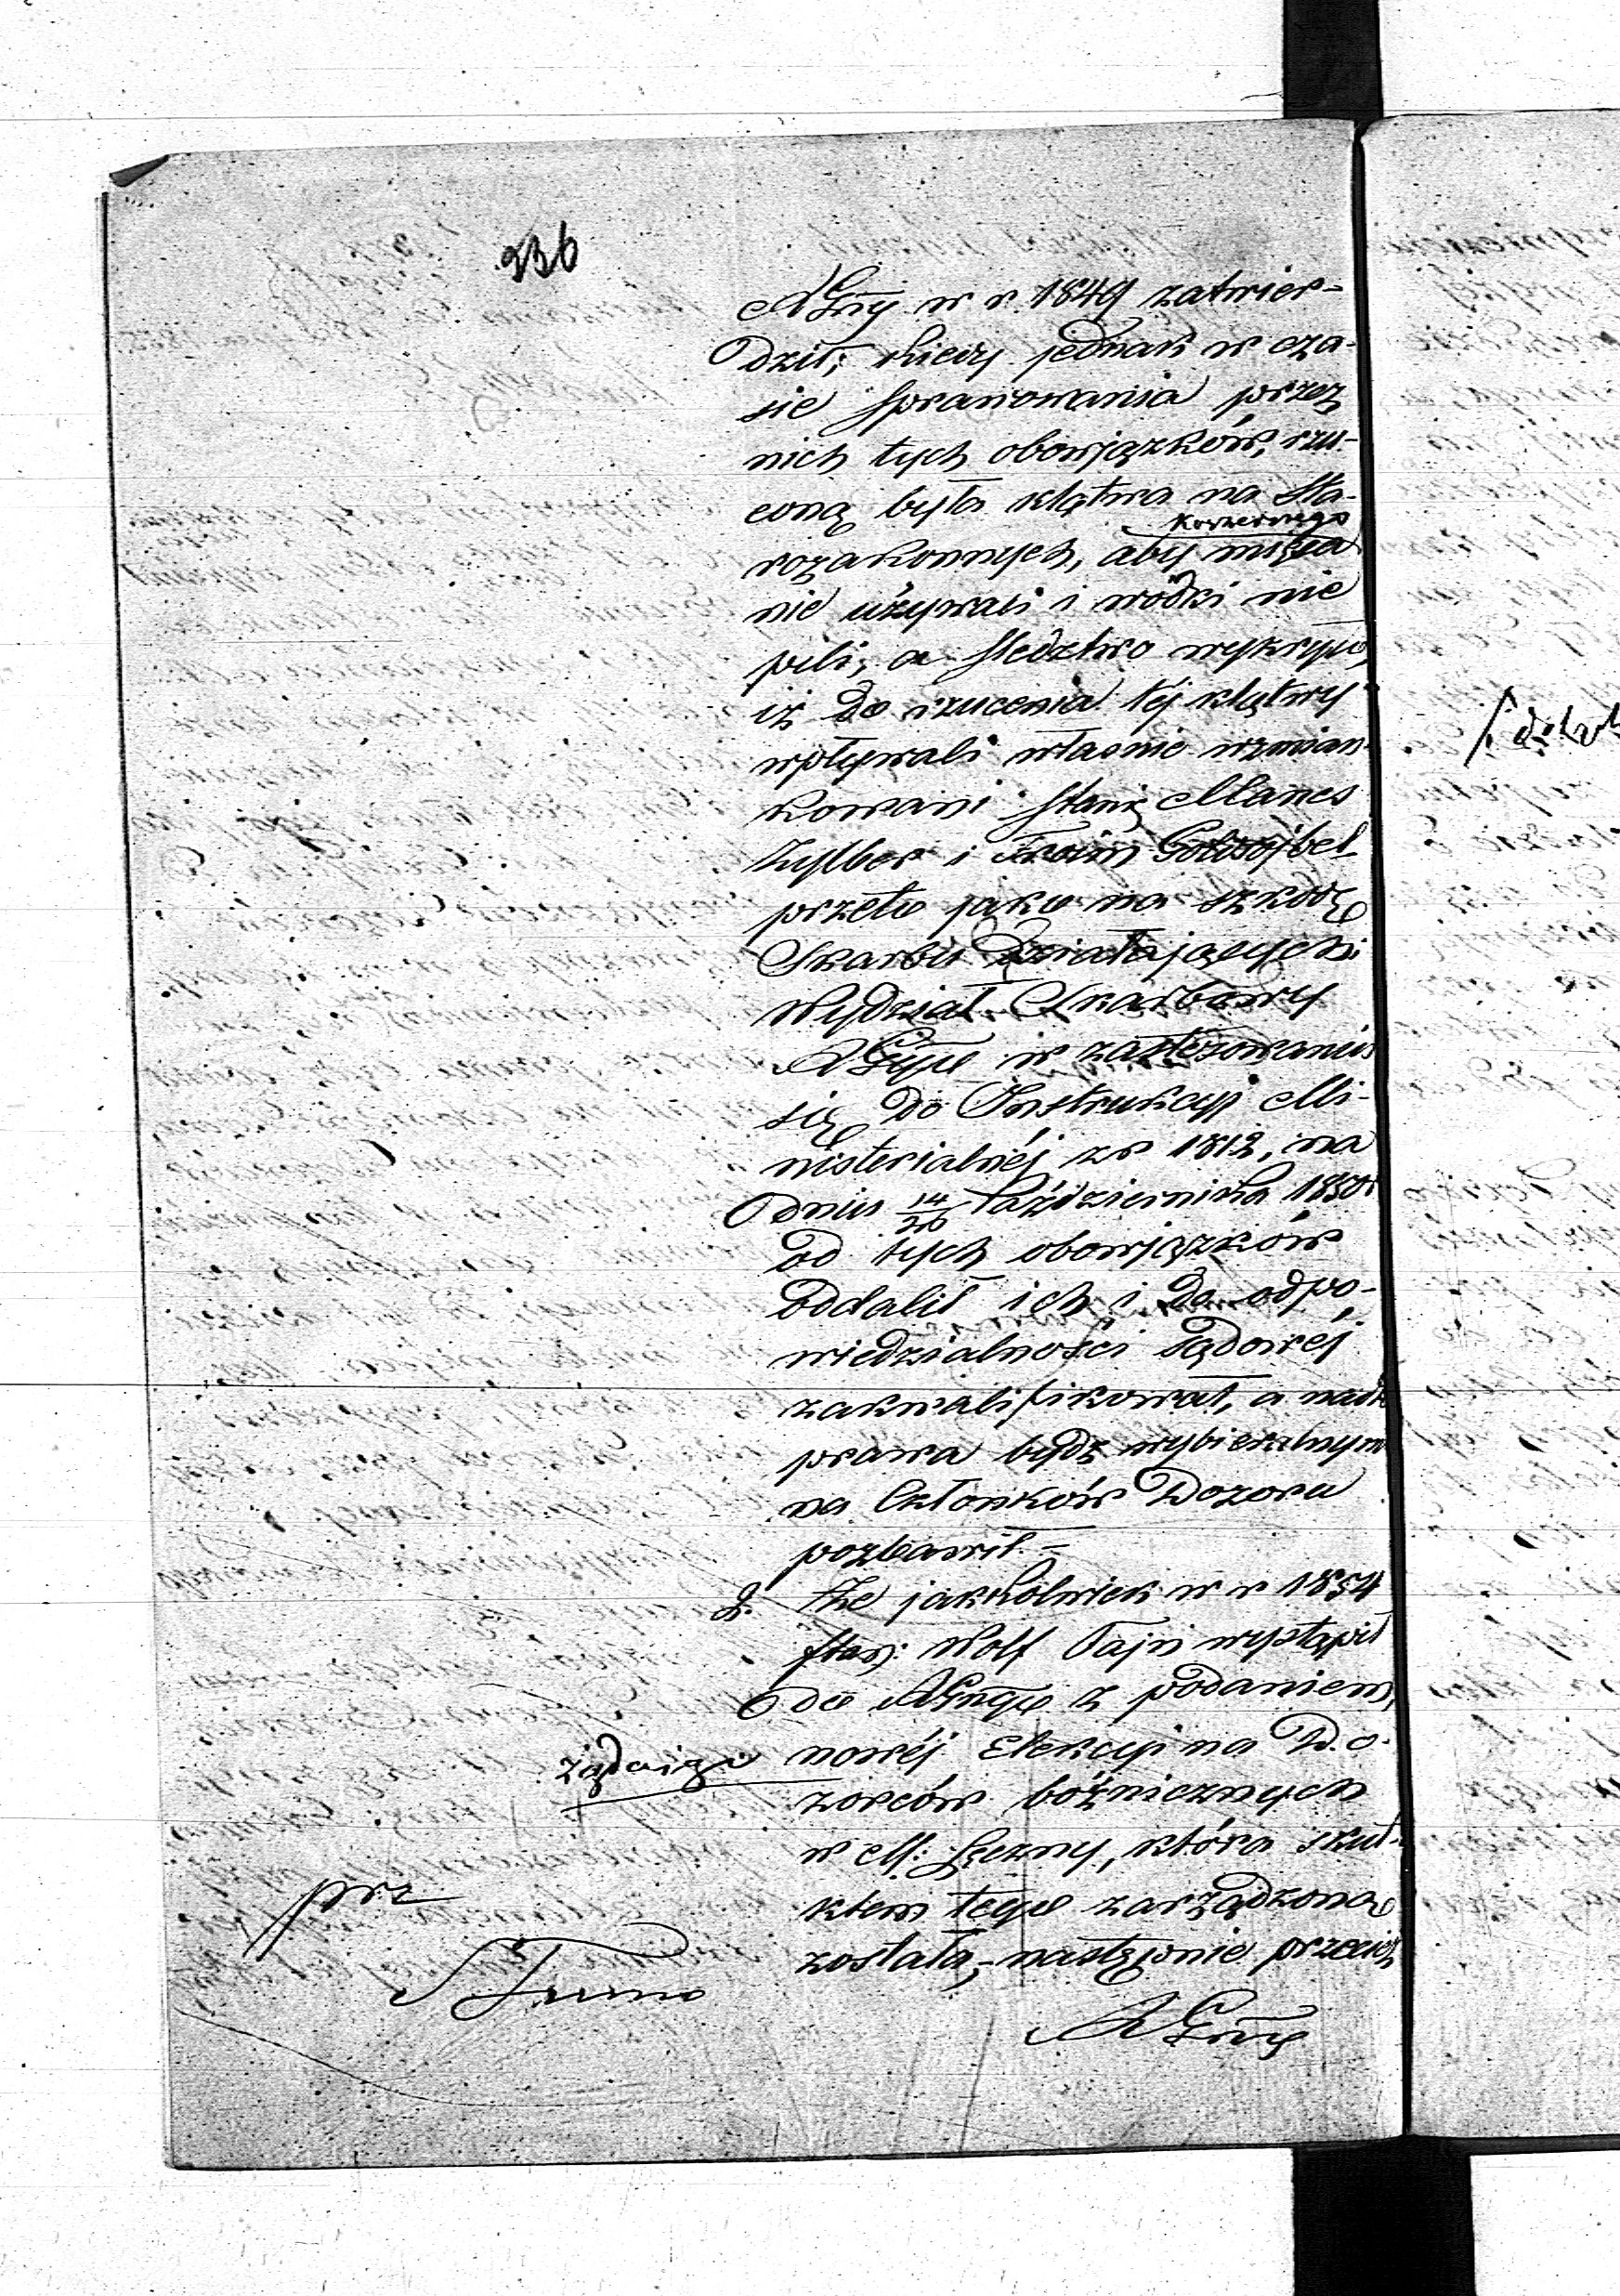 236
RGny w r. 1849 zatwier-
dził; kiedy jednak w cza-
sie sprawowania przez
nich tych obowiązków, rzu-
coną była klątwa na sta-
koszernego
rozakonnych, aby mięsa
nie używali i wódki nie
pili, a śledztwo wykryło,
iż do rzucenia téj klątwy
wpływali własnie wzmian-
kowani Stani Manes
Zylber i Froim
przeto jako na szkodę
Skarbu działających
Wydział Skarbowy
RGgo w zastosowaniu
się do Instrukcyi Mi-
nisterialnéj z r 1812, na
dniu 14/26 Października 1850 r
od tych obowiązków
oddalił ich i do odpo-
wiedzialności sądowéj
zakwalifikował, a nadto
prawa bydź wybieralnym
na Członków Dozoru
pozbawił.-
2. Że jakkolwiek w r 1854
Star: Wolf Fajn wystąpił
do RGnego z podaniem,
żądając nowéj Elekcyi na Do-
zorców bóżnicznych
w M: Łęczny, która skut-
kiem tego zarządzoną
została,- następnie przecież
RGny